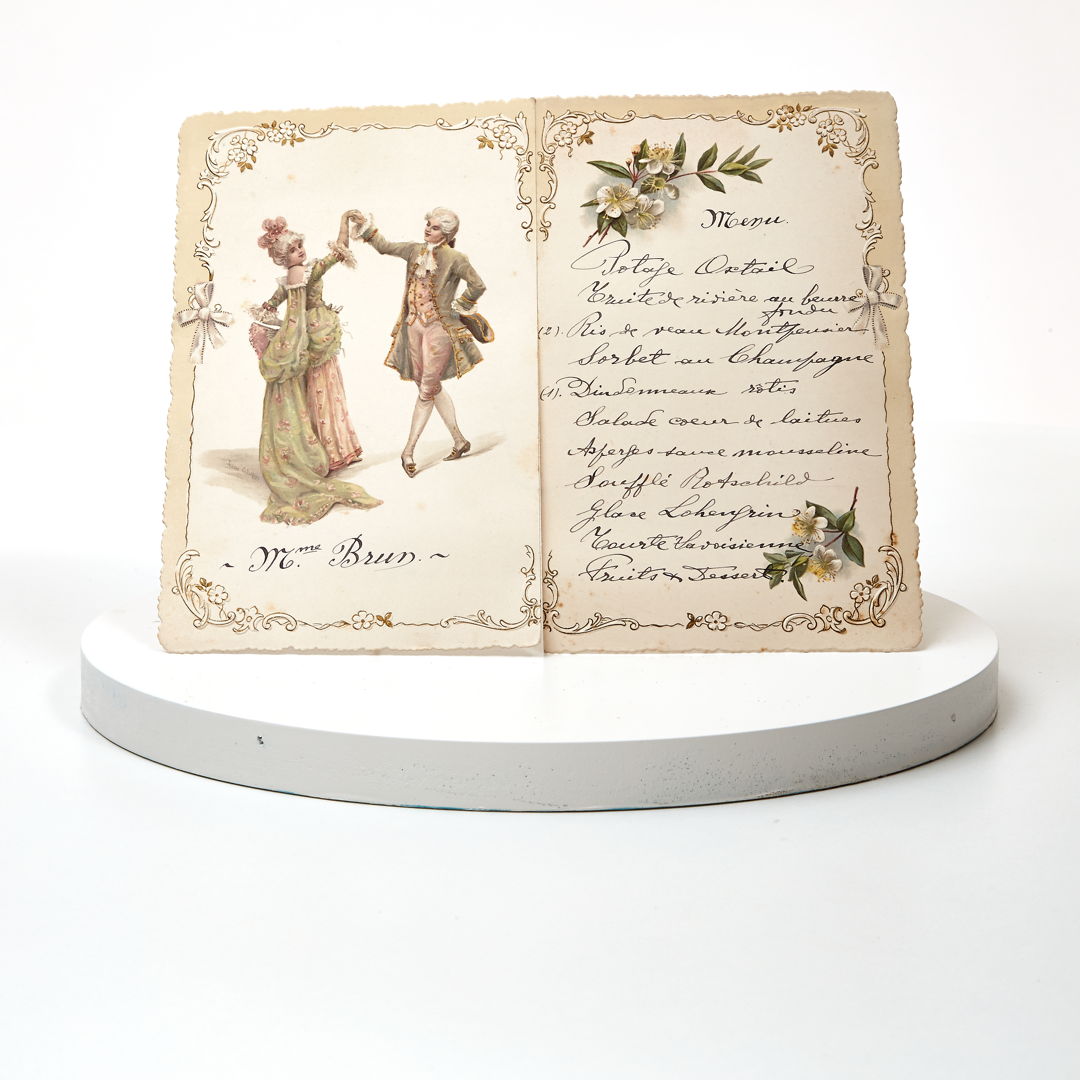 ~ Mme Brun. ~
Menu.
Potage Oxtail
Truite de rivière au beurre
fondu
(2). Ris de veau Montpensier
Sorbet au Champagne
(1). Dindonneaux rôtis
Salade coeur de laitues
Asperges sauce mousseline
Soufflé Rotschild
Glace Lohengrin
Tourte Savoisienne
Fruits & Dessert.